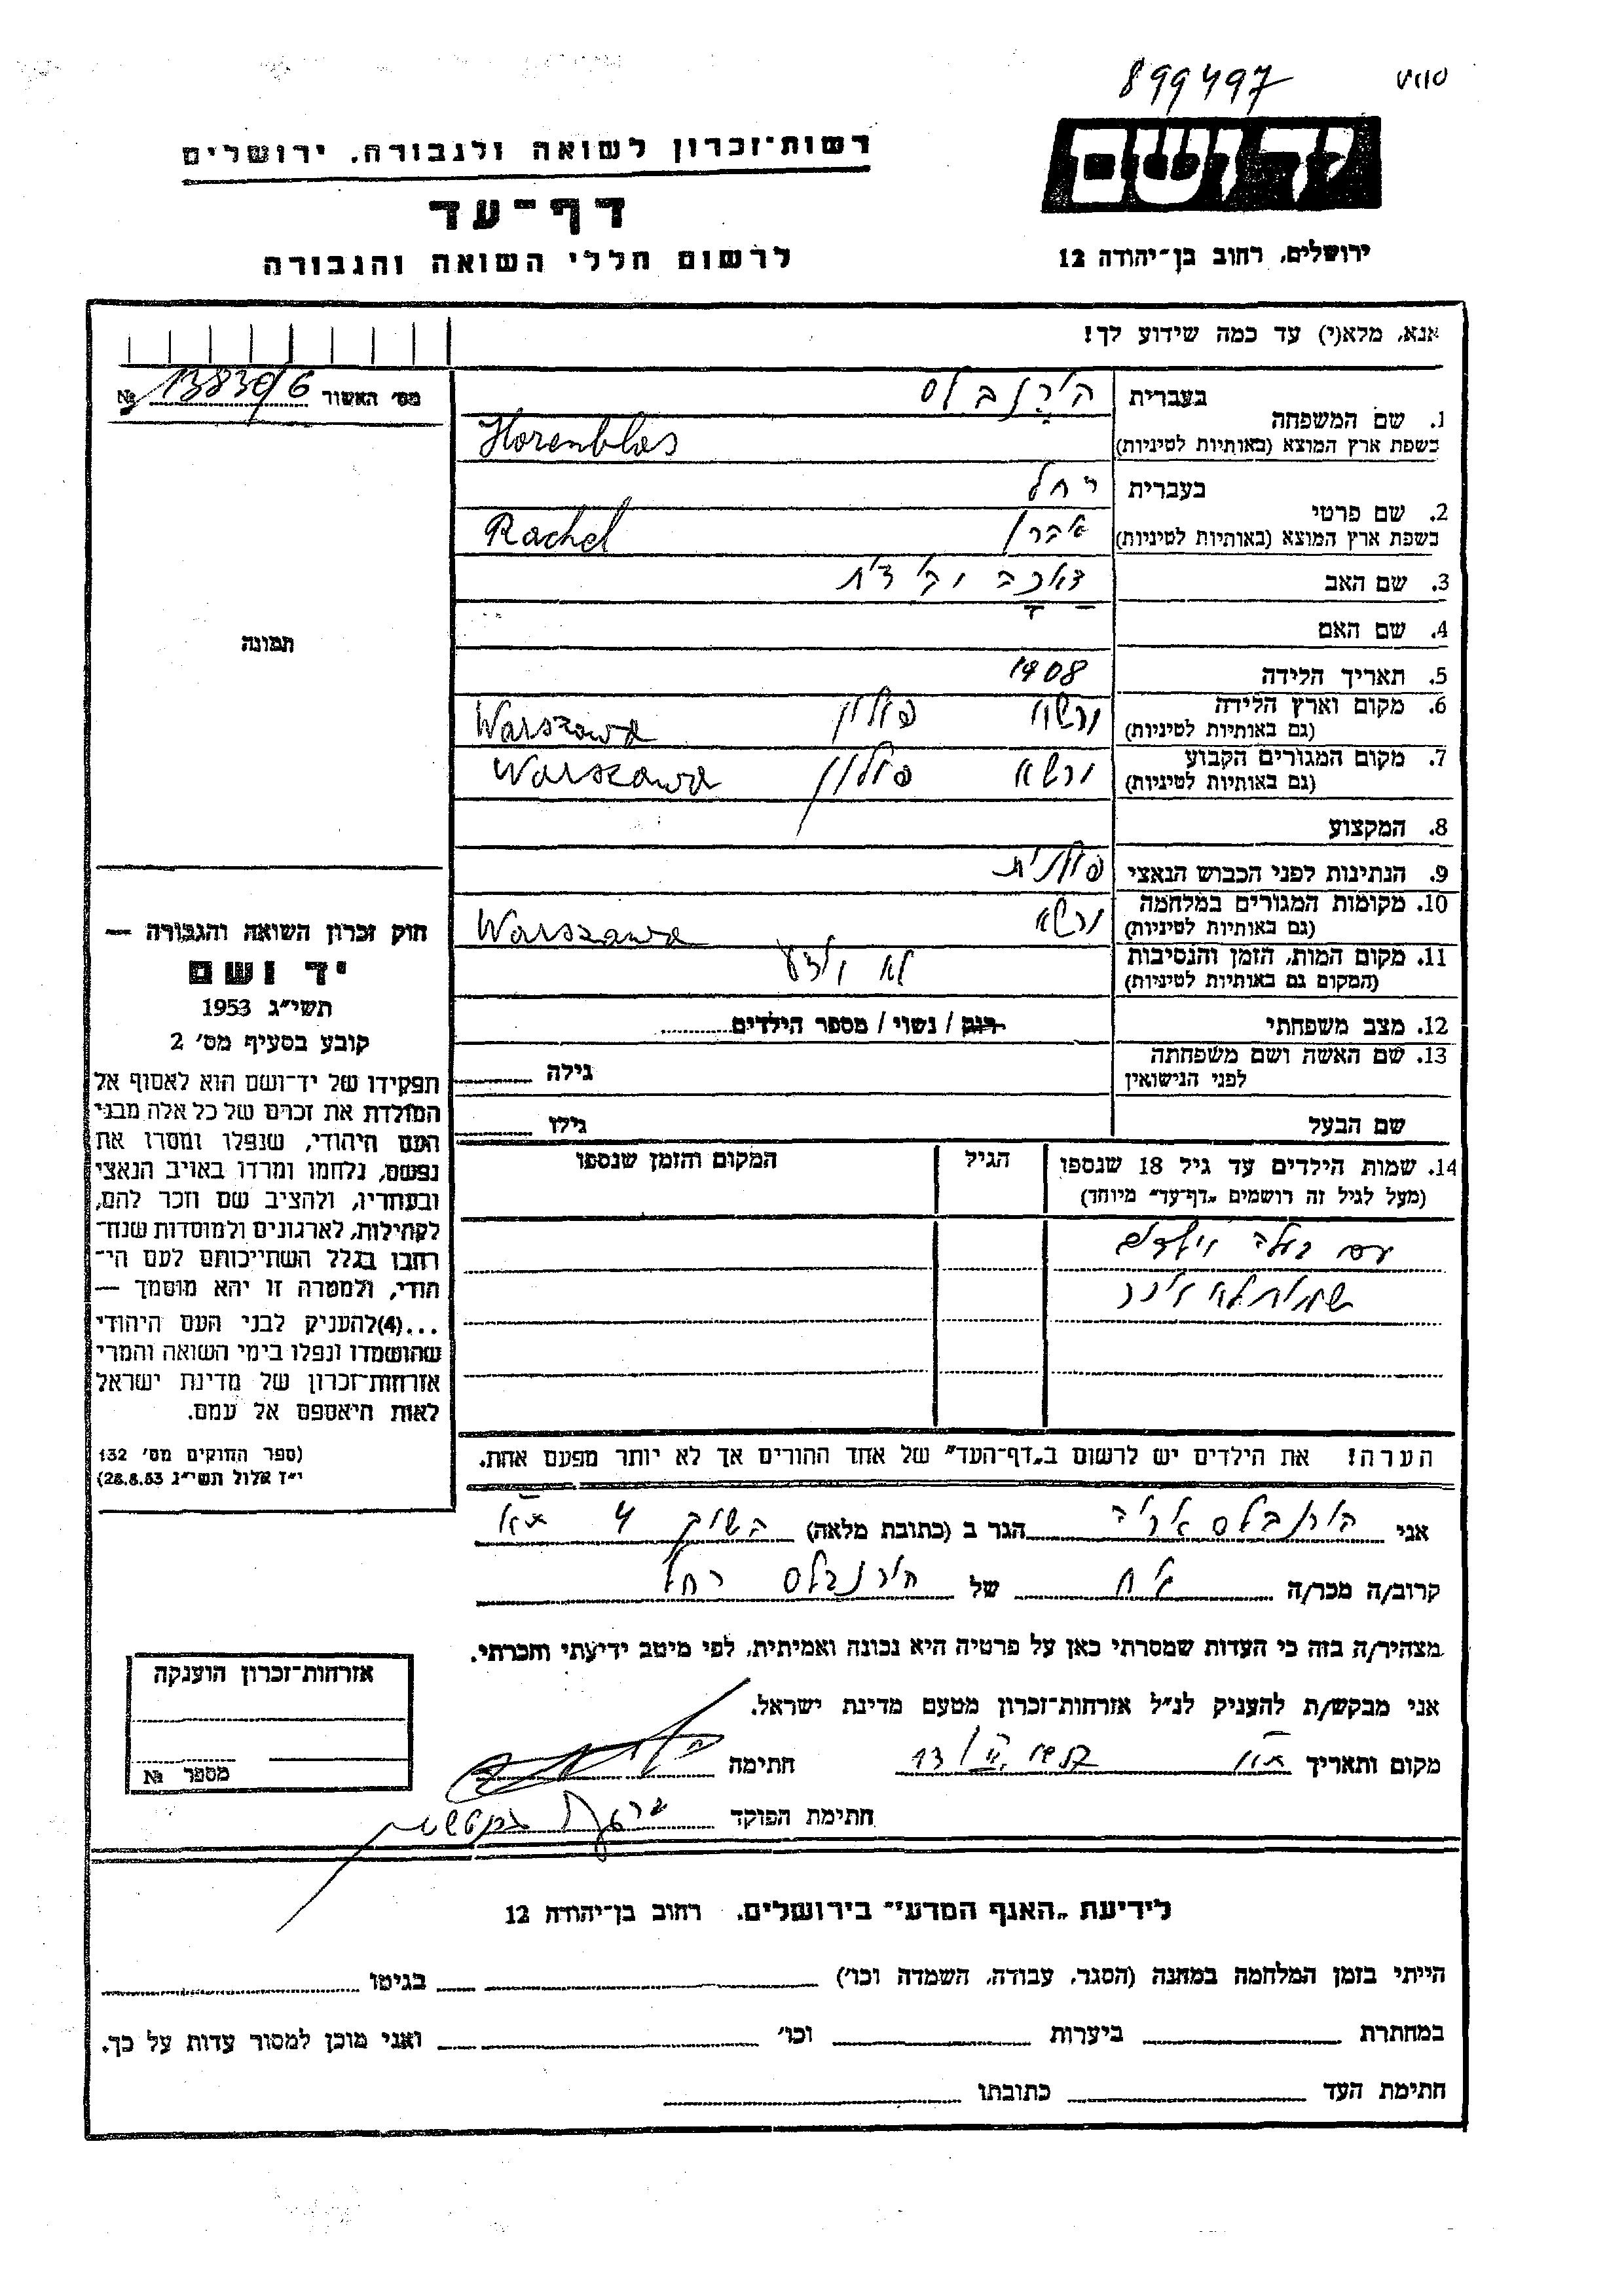 899497
רשות־זכרון לשואה ולגבורה, ירושלים
יד ושם
דף־עד
לרשום חללי השואה והגבורה
ירושלים, רחוב בן־יהודה 12
אנא, מלא(י) עד כמה שידוע לך!
מס' האשור № 13830/6
תמונה
1. שם המשפחה בעברית הירנבלס
בשפת ארץ המוצא (באותיות לטיניות) Horenblas
2. שם פרטי בעברית רחל
בשפת ארץ המוצא (באותיות לטיניות) Rachel
3. שם האב
4. שם האם
5. תאריך הלידה 1908
6. מקום וארץ הלידה (גם באותיות לטיניות) ורשא פולין Warszawa
7. מקום המגורים הקבוע (גם באותיות לטיניות) ורשא פולין Warszawa
8. המקצוע
9. הנתינות לפני הכבוש הנאצי פולנית
10. מקומות המגורים במלחמה (גם באותיות לטיניות) ורשא Warszawa
11. מקום המות, הזמן והנסיבות (המקום גם באותיות לטיניות) לא ידוע
12. מצב משפחתי רווק / נשוי / מספר הילדים
13. שם האשה ושם משפחתה לפני הנישואין גילה
שם הבעל גילו
14. שמות הילדים עד גיל 18 שנספו הגיל המקום והזמן שנספו
(מעל לגיל זה רושמים „דף־עד” מיוחד)
עם בעלה וילדים
הערה! את הילדים יש לרשום ב„דף־העד” של אחד ההורים אך לא יותר מפעם אחת.
חוק זכרון השואה והגבורה —
יד ושם
תשי"ג 1953
קובע בסעיף מס' 2
תפקידו של יד־ושם הוא לאסוף אל
המולדת את זכרם של כל אלה מבני
העם היהודי, שנפלו ומסרו את
נפשם, נלחמו ומרדו באויב הנאצי
ובעוזריו, ולהציב שם וזכר להם,
לקהילות, לארגונים ולמוסדות שנח־
רבו בגלל השתייכותם לעם הי־
הודי, ולמטרה זו יהא מוסמך —
...(4)להעניק לבני העם היהודי
שהושמדו ונפלו בימי השואה והמרי
אזרחות־זכרון של מדינת ישראל
לאות היאספם אל עמם.
(ספר החוקים מס' 132
י"ז אלול תשי"ג 28.8.53)
אני הירנבלס אריה הגר ב (כתובת מלאה) השוק 4 ת"א
קרוב/ה מכר/ה אח של הירנבלס רחל
מצהיר/ה בזה כי העדות שמסרתי כאן על פרטיה היא נכונה ואמיתית, לפי מיטב ידיעתי והכרתי.
אני מבקש/ת להעניק לנ"ל אזרחות־זכרון מטעם מדינת ישראל.
מקום ותאריך ת"א חתימה
חתימת הפוקד
אזרחות־זכרון הוענקה
מספר №
לידיעת „האגף המדעי” בירושלים, רחוב בן־יהודה 12
הייתי בזמן המלחמה במחנה (הסגר, עבודה, השמדה וכו') בגיטו
במחתרת ביערות וכו' ואני מוכן למסור עדות על כך.
חתימת העד כתובתו